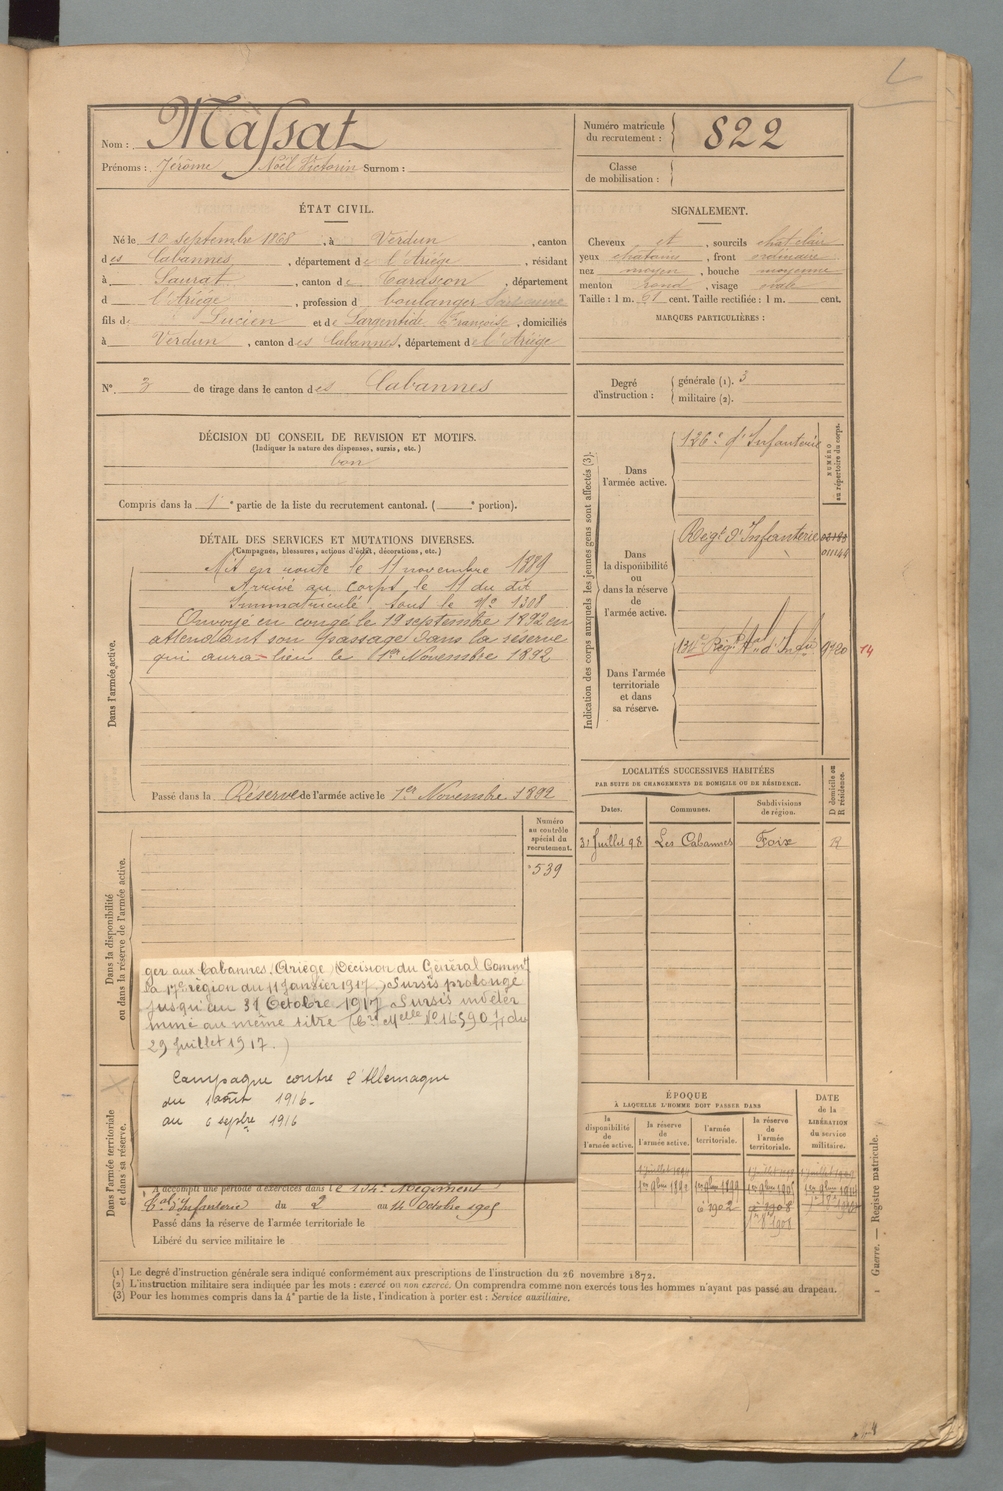 Nom : Massat
Prénoms : Jérôme Noël Victorin Surnom :
Numéro matricule du recrutement : 822
Classe de mobilisation :
ÉTAT CIVIL.
Né le 10 septembre 1868, à Verdun, canton
des Cabannes, département de l'Ariége, résidant
à Saurat, canton de Tarascon, département
d l'Ariége, profession d boulanger
fils de Lucien et de Largentide Françoise, domiciliés
à Verdun, canton des Cabannes, département de l'Ariége
SIGNALEMENT.
Cheveux et, sourcils chat clair
yeux chatains, front ordinaire
nez moyen, bouche moyenne
menton rond, visage ovale
Taille : 1 m. 61 cent. Taille rectifiée : 1 m. cent.
MARQUES PARTICULIÈRES :
N° 3 de tirage dans le canton des Cabannes
Degré d'instruction :
générale (1). 3
militaire (2).
DÉCISION DU CONSEIL DE REVISION ET MOTIFS.
(Indiquer la nature des dispenses, sursis, etc.)
bon
Compris dans la 1e partie de la liste du recrutement cantonal. ( e portion).
DÉTAIL DES SERVICES ET MUTATIONS DIVERSES.
(Campagnes, blessures, actions d'éclat, décorations, etc.)
Dans l'armée active.
Mis en route le 11 novembre 1889
Arrivé au corps le 11 du dit
Immatriculé sous le N° 1308
Envoyé en congé le 19 septembre 1892 en
attendant son passage dans la réserve
qui aura lieu le 1er Novembre 1892
Passé dans la Réserve de l'armée active le 1er Novembre 1892
Indication des corps auxquels les jeunes gens sont affectés (3).
Dans l'armée active.
126e d'Infanterie
NUMÉRO au répertoire du corps.
Dans la disponibilité ou dans la réserve de l'armée active.
Régt d'Infanterie
01144
Dans l'armée territoriale et dans sa réserve.
134e Régt tal d'Infie
14
LOCALITÉS SUCCESSIVES HABITÉES
PAR SUITE DE CHANGEMENTS DE DOMICILE OU DE RÉSIDENCE.
Dates.
Communes.
Subdivisions de région.
D domicile ou R résidence.
31 Juillet 98 Les Cabannes Foix R
Numéro au contrôle spécial du recrutement.
539
Dans la disponibilité ou dans la réserve de l'armée active.
ger aux Cabannes. Ariége (Décision du Général Commt
la 17e région du 11 Janvier 1917.) Sursis prolongé
jusqu'au 31 Octobre 1917 Sursis indéter
miné au même titre (Cre Melle No 16590 du
29 Juillet 1917.)
Campagne contre l'Allemagne
du 1 août 1916.
au 6 septbre 1916
Dans l'armée territoriale et dans sa réserve.
A accompli une période d'exercices dans le 134e Régiment
tal d'Infanterie du 2 au 14 Octobre 1905
Passé dans la réserve de l'armée territoriale le
Libéré du service militaire le
ÉPOQUE
À LAQUELLE L'HOMME DOIT PASSER DANS
la disponibilité de l'armée active.
la réserve de l'armée active.
l'armée territoriale.
la réserve de l'armée territoriale.
DATE de la LIBÉRATION du service militaire.
1er 9bre 1892 1er 9bre 1899
(1) Le degré d'instruction générale sera indiqué conformément aux prescriptions de l'instruction du 26 novembre 1872.
(2) L'instruction militaire sera indiquée par les mots : exercé ou non exercé. On comprendra comme non exercés tous les hommes n'ayant pas passé au drapeau.
(3) Pour les hommes compris dans la 4e partie de la liste, l'indication à porter est : Service auxiliaire.
Guerre. — Registre matricule.